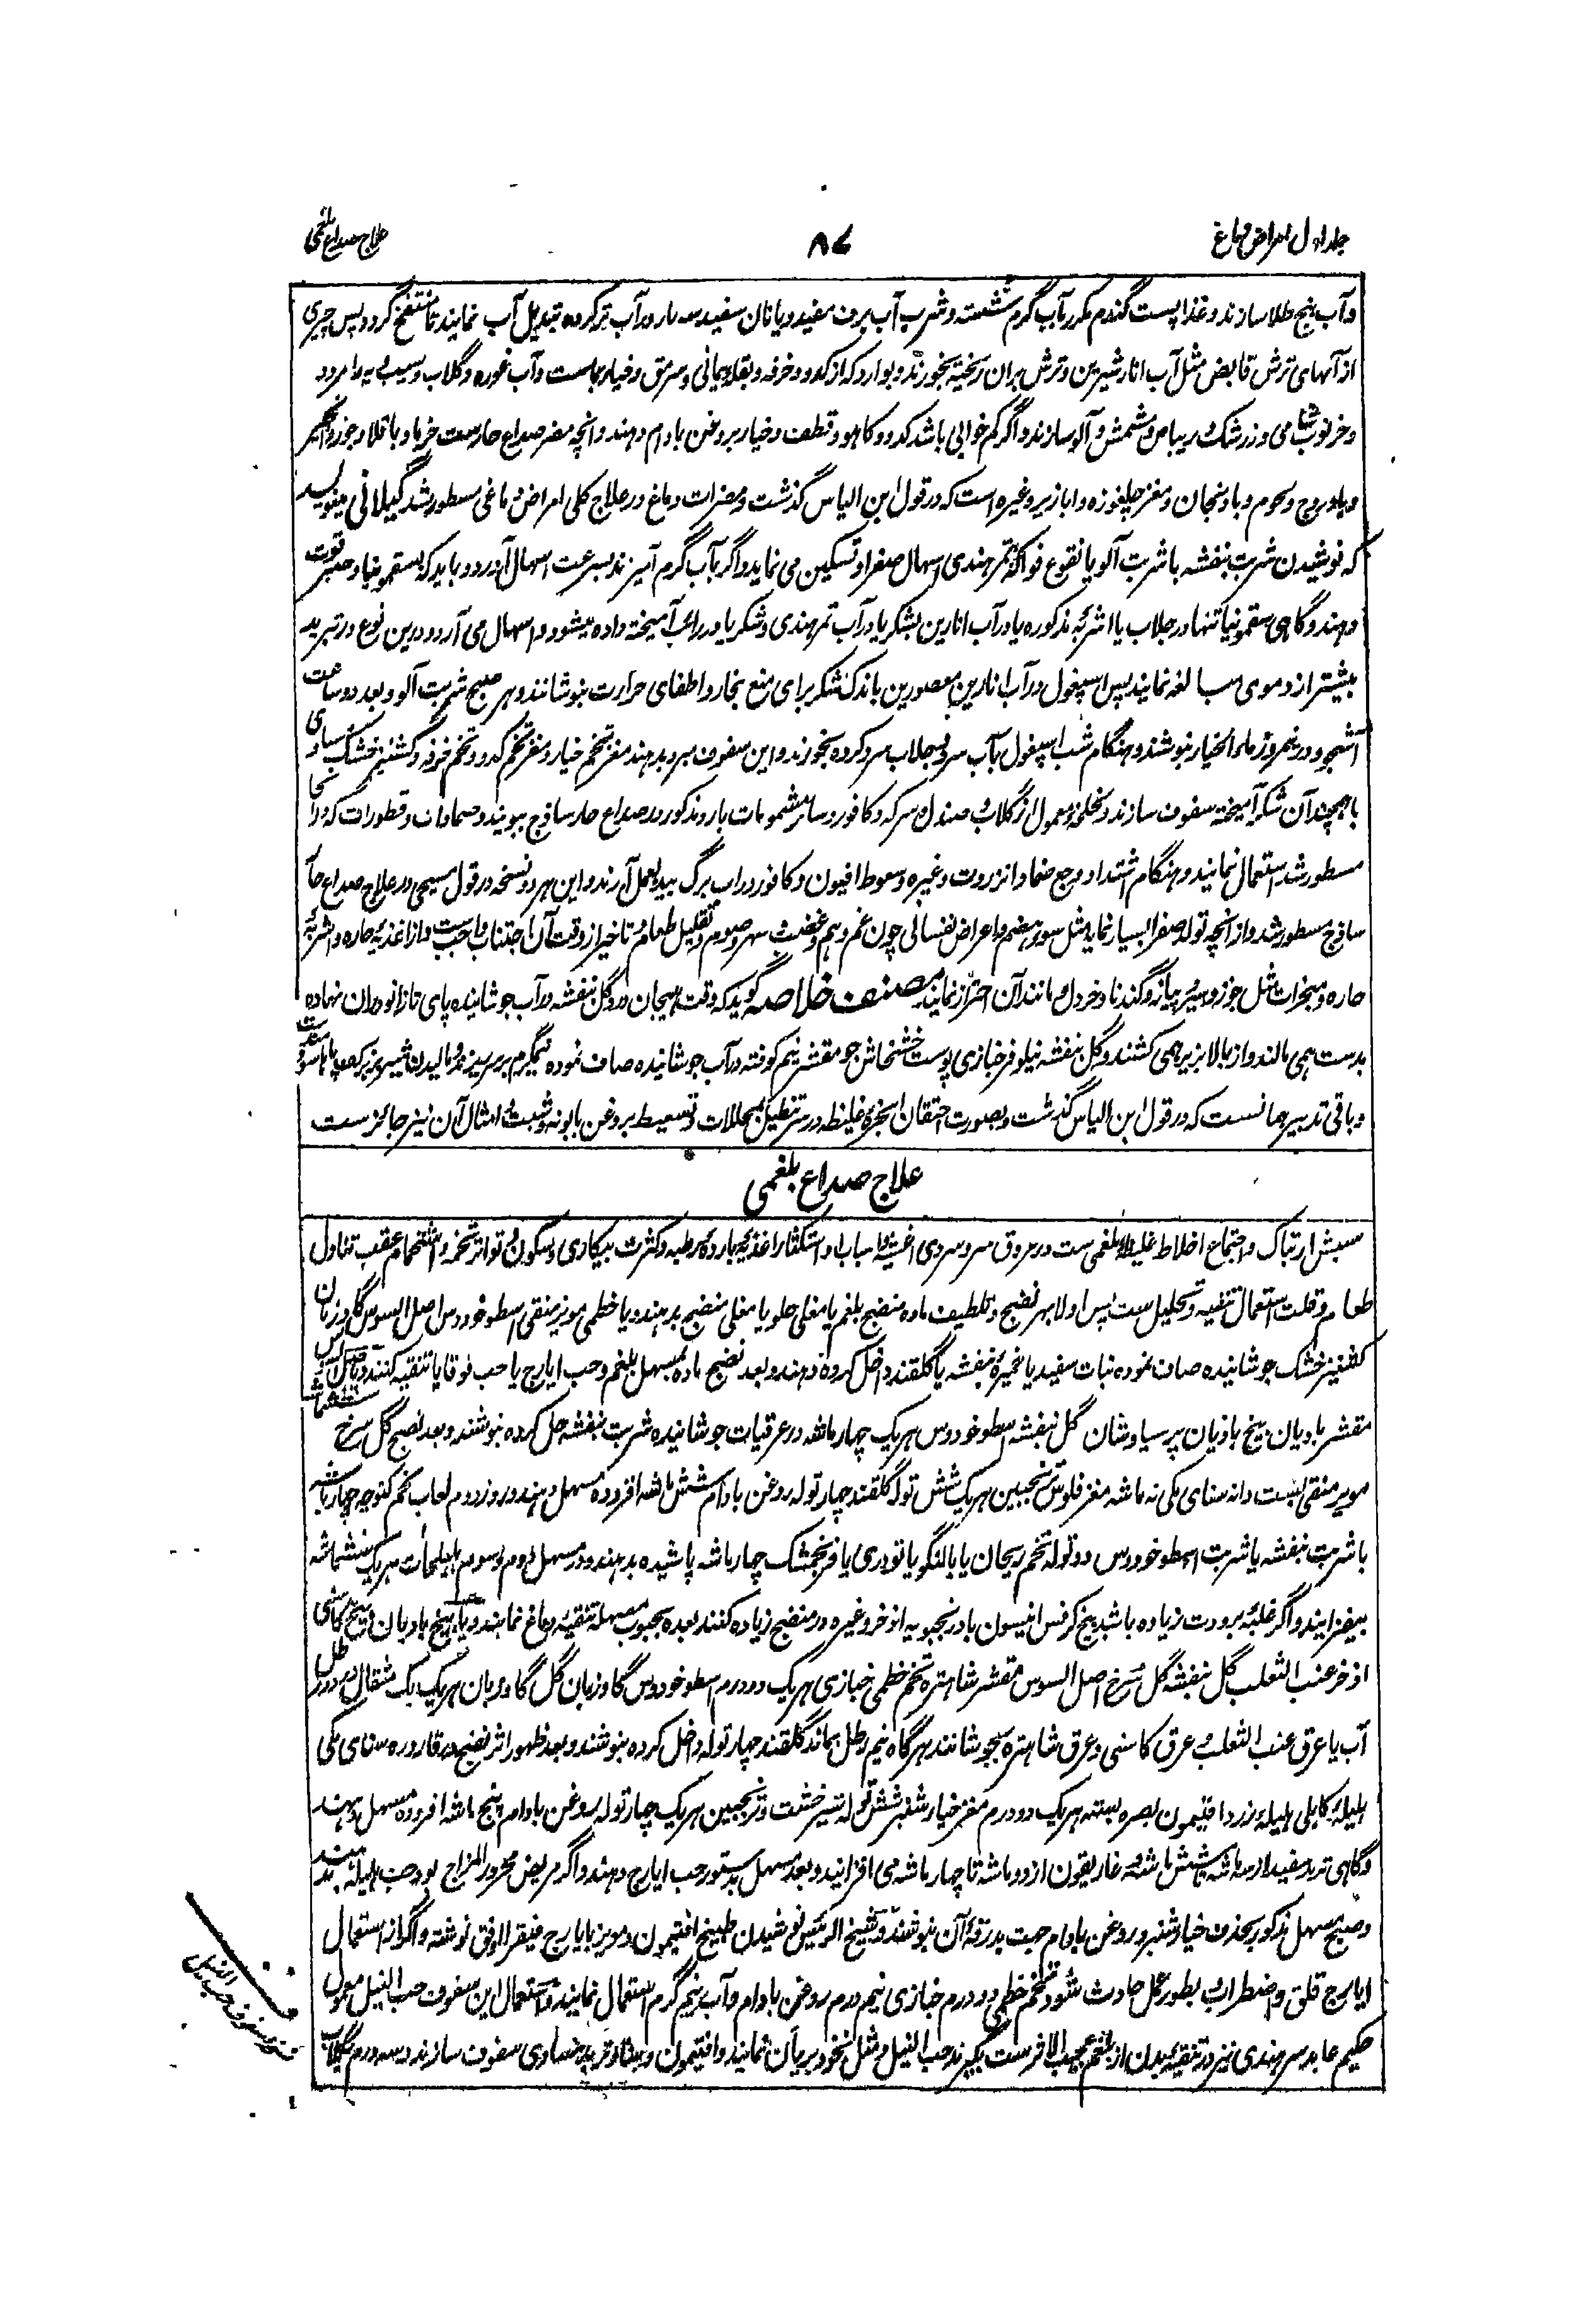 جلد اول امراض دماغ
۸۷
علاج صداع بلغمی
و آب یخ طلا سازند و غذا پست گندم مکرر بآب گرم شسته و شرب آب برف مفید و یا نان سفید سه بار در آب تر کرده تبدیل آب نمایند تا منتفخ گردد پس چیزی
از آبهای ترش قابض مثل آب انار شیرین و ترش بران ریخته بخورند و بوارد که از کدو و خرفه و بقله یمانی و سرمق و خیار بهاست و آب غوره و گلاب و سیب و به و امرود
و خرنوب شامی و زرشک و ریباس و مشمش و آلو سازند و اگر کم خوابی باشد کدو و کاهو و قطف و خیار بروغن بادام دهند و آنچه مضر صداع حارست خرما و باقلا و جوز و انجیر
و بادروج و ثوم و بادنجان و مغز چلغوزه و ابازیر و غیره است که در قول ابن الیاس گذشت و مضرات دماغ در علاج کلی امراض دماغی مسطور شد گیلانی میفرماید
که نوشیدن شربت بنفشه با شربت آلو یا نقوع فواکه و تمر هندی اسهال صفرا و تسکین می نماید و اگر بآب گرم آمیزند بسرعت اسهال آرد و باید که سقمونیا و صبر قوت
دهند و گاهی سقمونیا تنها در جلاب یا اشربه مذکوره یا در آب انارین بشکر یا در آب تمر هندی و شکر یا در رائب آمیخته داده میشود و اسهال می آرد و درین نوع در تبرید
بیشتر از دموی مبالغه نمایند پس اسپغول در آب انارین معصورین باندک شکر برای منع بخار و اطفای حرارت بنوشانند و هر صبح شربت آلو و بعد دو ساعت
آش جو و در نیمروز ماء الخیار بنوشند و هنگام شب اسپغول بآب سرد و جلاب سرد کرده بخورند و این سفوف سرد بدهند مغز تخم خیار و مغز تخم کدو و تخم خرفه و کشنیز خشک مساوی
با همچند آن شکر آمیخته سفوف سازند و لخلخه معمول از گلاب و صندل و سرکه و کافور و سائر مشمومات بارده مذکور در صداع حار ساذج ببویند و ضمادات و قطورات که در آنجا
مسطور شد استعمال نمایند و هنگام اشتداد وجع ضماد انزروت و غیره و سعوط افیون و کافور در آب برگ بید بعمل آرند و این هر دو نسخه در قول مسیحی در علاج صداع حار
ساذج مسطور شد و از آنچه تولد صفرا بسیار نماید مثل سوء هضم و اعراض نفسانی چون غم و هم و غضب و سهر و صوم و تقلیل طعام و تاخیر از وقت آن اجتناب واجب است و از اغذیه حاره و اشربه
حاره و مبخرات مثل جوز و سیر و پیاز و گندنا و خردل و مانند آن احتراز نمایند مصنف خلاصه گوید که وقت هیجان درد گل بنفشه در آب جوشانیده پای تا زانو دران نهاده
بدست همی مالند و از بالا بزیر همی کشند و گل بنفشه نیلوفر خبازی پوست خشخاش جو مقشر نیم کوفته در آب جوشانیده صاف نموده نیم گرم بر سر ریزند و مالیدن شیر بز بر کف پا
و باقی تدبیر همانست که در قول ابن الیاس گذشت و بصورت احتقان ابخره غلیظه در سر تنطیل بمحللات و تسعیط بروغن بابونه و شبت و امثال آن نیز جائز ست
علاج صداع بلغمی
سببش ارتباک و اجتماع اخلاط غلیظه بلغمی ست در عروق سر و سردی اغشیه و اسباب او استکثار اغذیه بارده رطبه و کثرت بیکاری و سکون و تواتر تخمه و استحمام عقب تناول
طعام و قلت استعمال تنقیه و تحلیل ست پس اولا بهر نضج و تلطیف ماده منضج بلغم یا مغلی حلو یا مغلی منضج بدهند و یا خطمی مویز منقی اسطوخودوس اصل السوس گاوزبان
کشنیز خشک جوشانیده صاف نموده نبات سفید یا خمیره بنفشه یا گلقند داخل کرده دهند و بعد نضج ماده بمسهل بلغم و حب ایارج یا حب قوقایا تنقیه کنند و یا
مقشر بادیان بیخ بادیان پرسیاوشان گل بنفشه اسطوخودوس هر یک چهار ماشه در عرقیات جوشانیده شربت بنفشه حل کرده بنوشند و بعد نضج گل سرخ
مویز منقی بست دانه سنای مکی نه ماشه مغز فلوس ترنجبین هر یک شش توله گلقند چهار توله روغن بادام شش ماشه افزوده مسهل دهند و روز دوم لعاب تخم کنوچه چهار ماشه
با شربت بنفشه یا شربت اسطوخودوس دو توله تخم ریحان یا بالنگو یا تودری یا فرنجمشک چهار ماشه پاشیده بدهند و در مسهل دوم و سوم هلیلجات هر یک شش ماشه
بیفزایند و اگر غلبه برودت زیاده باشد بیخ کرفس انیسون بادرنجبویه اذخر و غیره در منضج زیاده کنند بعده بحبوب مسهله تنقیه دماغ نمایند و یا بیخ بادیان و بیخ کاسنی
اذخر عنب الثعلب گل بنفشه گل سرخ اصل السوس مقشر شاهتره تخم خطمی خبازی هر یک دو درم اسطوخودوس گاوزبان گل گاوزبان هر یک یک مثقال در دو رطل
آب یا عرق عنب الثعلب و عرق کاسنی و عرق شاهتره بجوشانند هر گاه نیم رطل بماند گلقند چهار توله داخل کرده بنوشند و بعد ظهور اثر نضج در قاروره سنای مکی
هلیله کابلی هلیله زرد افتیمون بصره بسته هر یک دو درم مغز خیار شنبر شش توله شیر خشت و ترنجبین هر یک چهار توله روغن بادام پنج ماشه افزوده مسهل دهند
و گاهی تربد سفید از سه ماشه تا شش ماشه و غاریقون از دو ماشه تا چهار ماشه می افزایند و بعد مسهل بدستور حب ایارج دهند و اگر مریض محرور المزاج بود حب هلیله دهند
و صبح مسهل مذکور بحذف خیار شنبر و روغن بادام جهت بدرقه آن بنوشند و شیخ الرئیس نوشیدن طبیخ افتیمون و مویز با یارج فیقرا اوفق نوشته و اگر از استعمال
ایارج قلق و اضطراب بطور عمل حادث شود تخم خطمی دو درم خبازی نیم درم روغن بادام و آب نیم گرم استعمال نمایند و استعمال این سفوف حب النیل معمول
حکیم عابد سرهندی نیز در تنقیه بدن از بلغم عجیب الاثر ست بگیرند حب النیل و مثل نخود بریان نمایند و افتیمون و تربد مساوی سفوف سازند و سه درم بگلاب
سفوف حب النیل